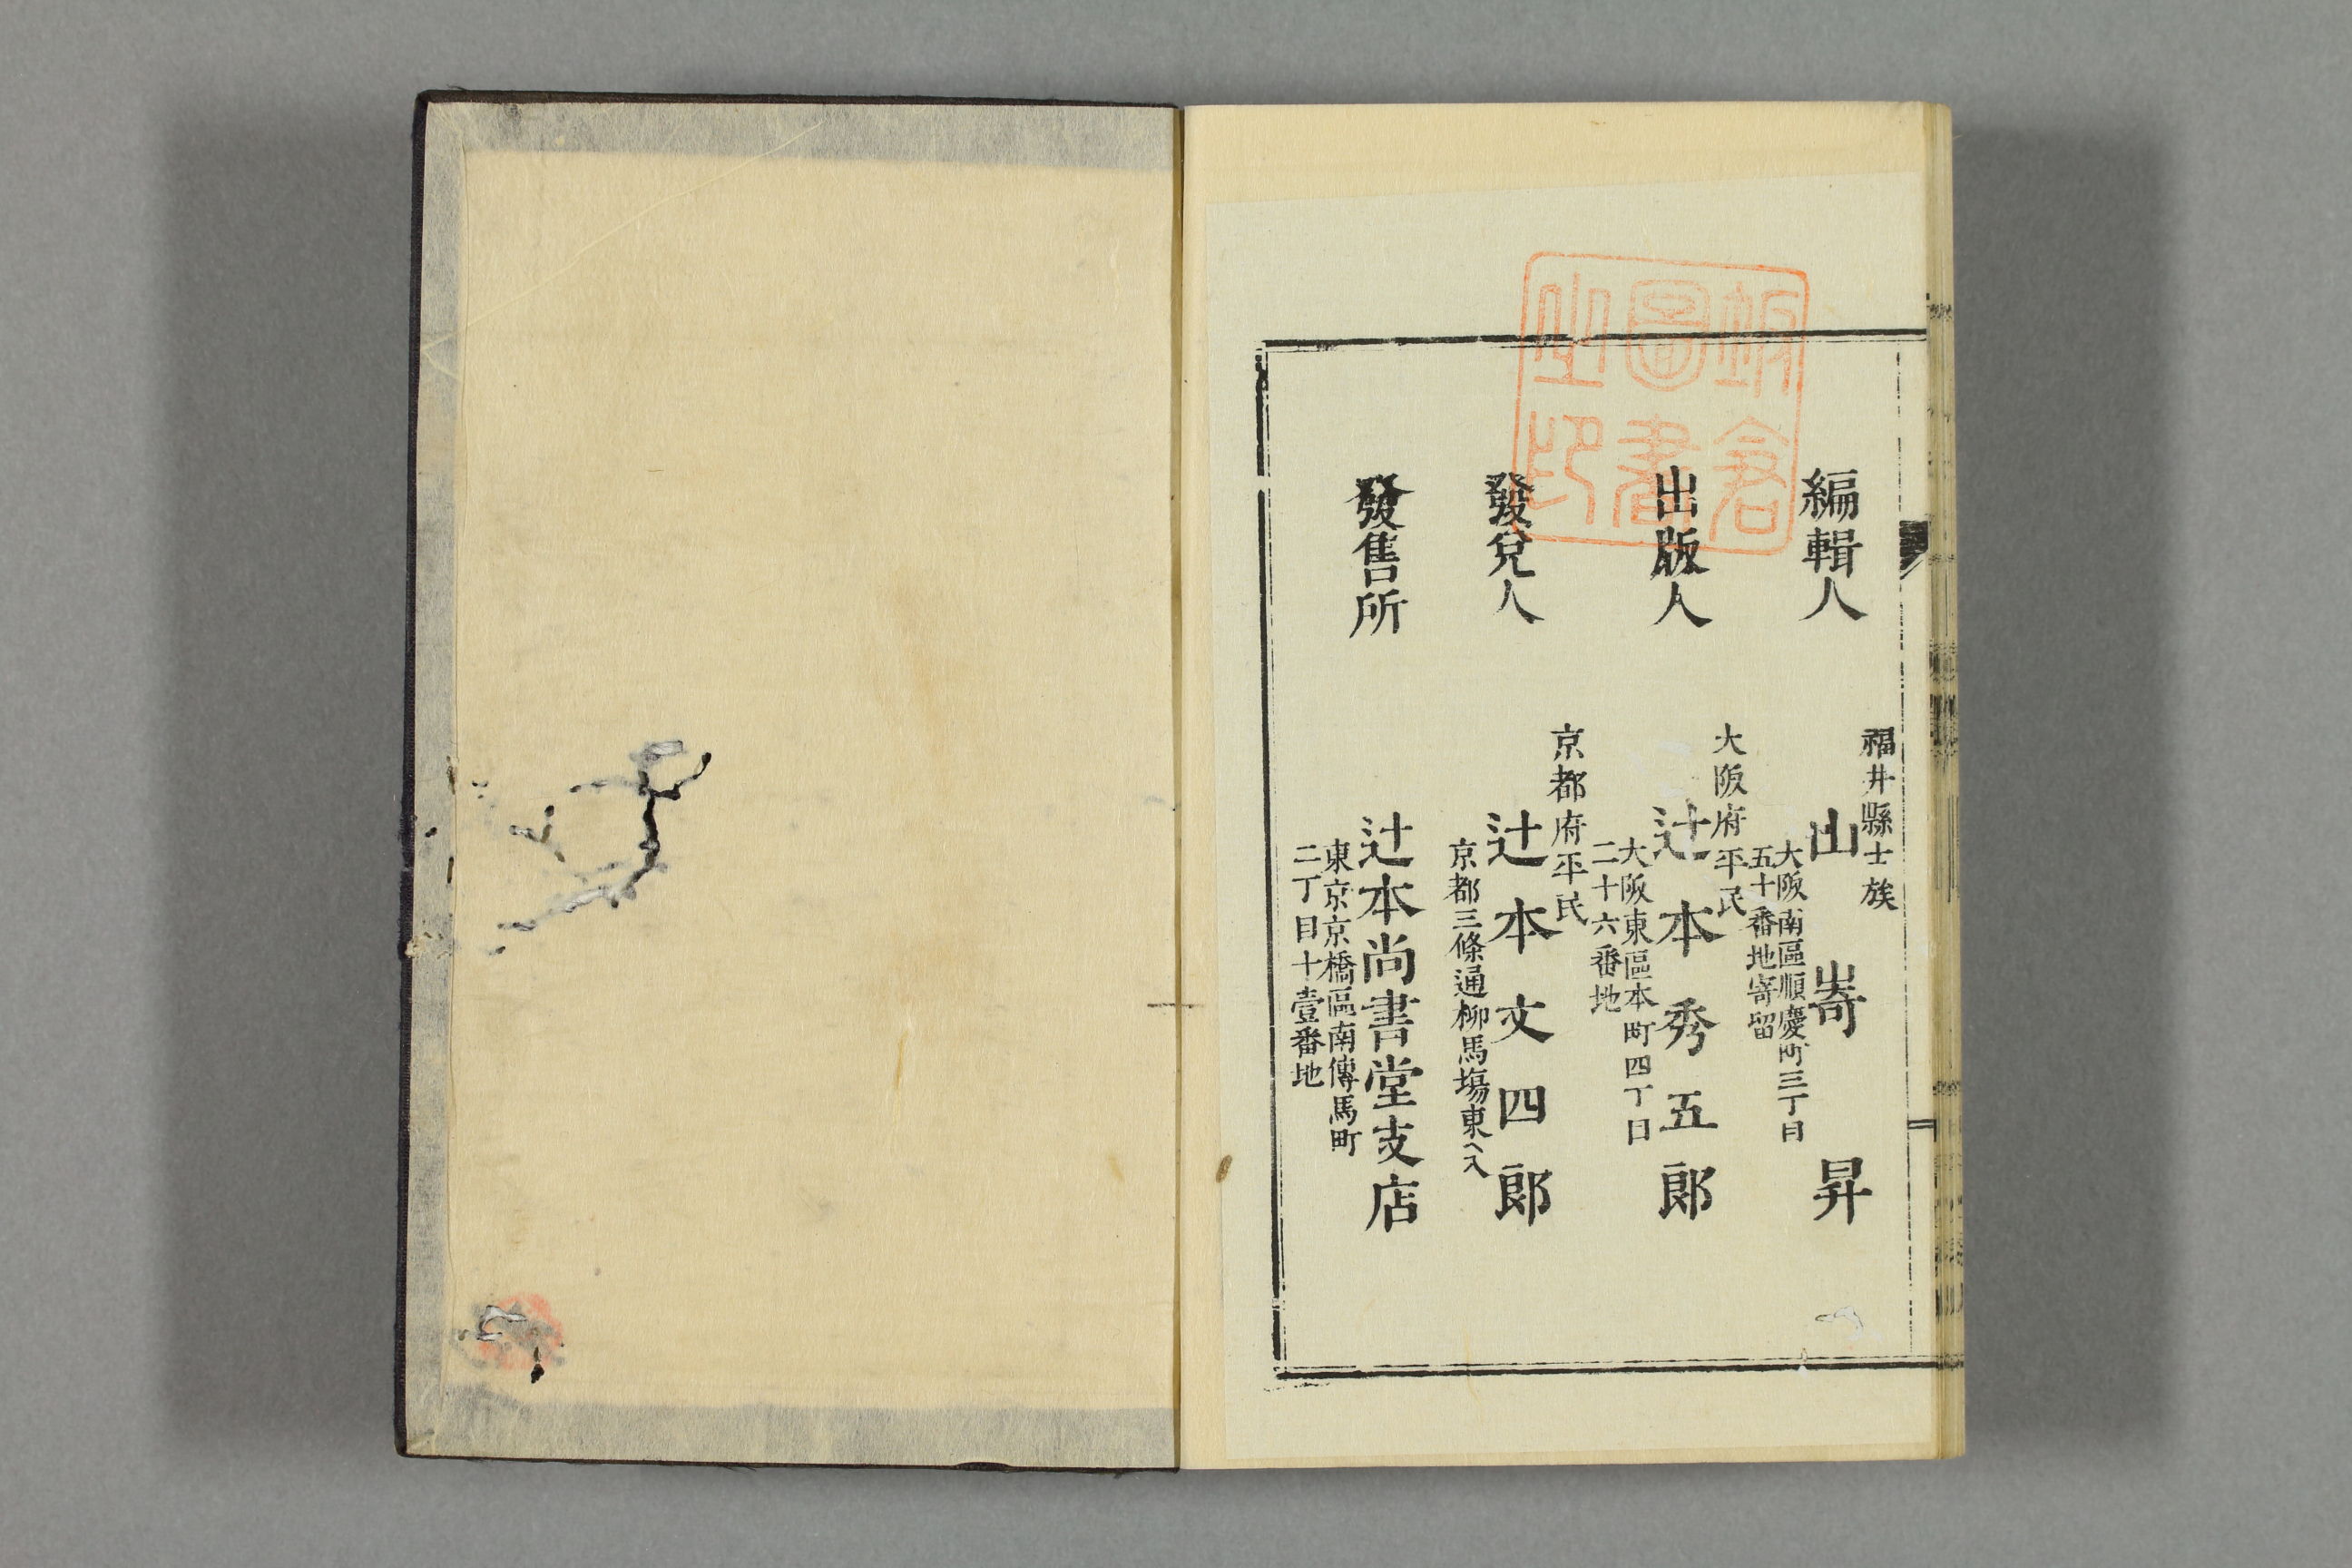 福井縣士族
編輯人 山嵜昇
大阪南區順慶町三丁目
五十番地寄留
大阪府平民
出版人 辻本秀五郎
大阪東區本町四丁目
二十六番地
京都府平民
發兌人 辻本文四郎
京都三條通柳馬塲東へ入
發售所 辻本尚書堂支店
東京京橋區南傳馬町
二丁目十壹番地
圖書
之印